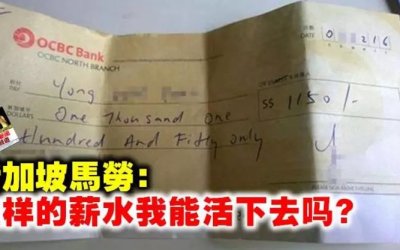 OCBC Bank
OCBC NORTH BRANCH
DATE 0 216
Yong
DOLLARS One Thousand One
S$ 1150/-
Hundred And Fifty only
加坡馬勞：
样的薪水我能活下去吗？